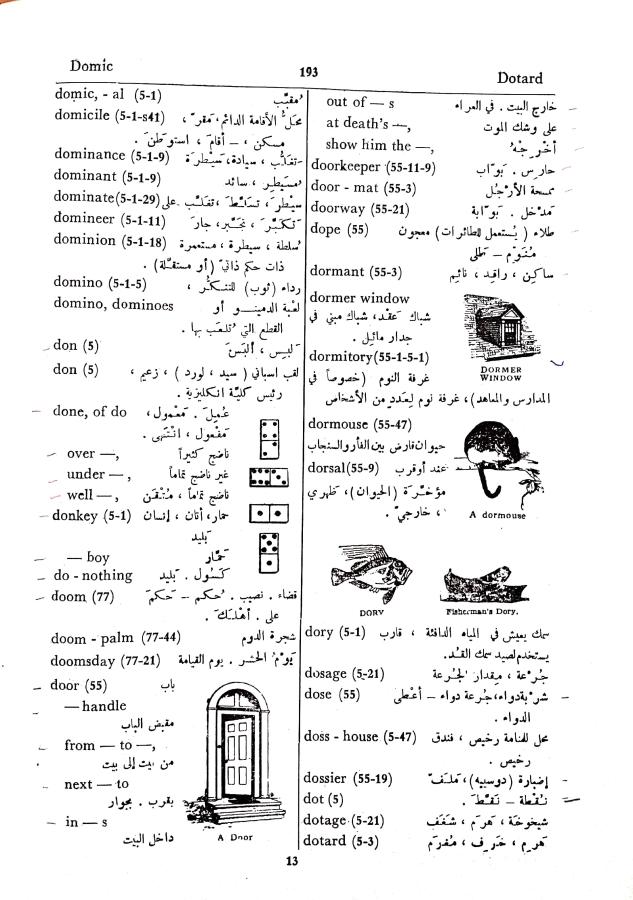 Domic
193
Dotard
domic, - al (5-1) مقبَّب
domicile (5-1-s41) محل الأقامة الدائم، مقر ،
مسكن ، – أقام ، استوطن .
dominance (5-1-9) تغلّب ، سيادة، سيطرة
dominant (5-1-9) مسيطر ، سائد
dominate (5-1-29) سيطر ، تسلّط ، تغلّب على
domineer (5-1-11) تكبّر ، تجبّر، جار
dominion (5-1-18) سُلطة ، سيطرة ، مستعمرة
ذات حكم ذاتيّ (أو مستقلّة) .
domino (5-1-5) رداء (ثوب) للتنكّر ،
domino, dominoes لعبة الدمينـو أو
القطع التي تُلعب بها .
don (5) لَبِسَ ، ألبَسَ
don (5) لقب اسباني ( سيد ، لورد ) ، زعيم ،
رئيس كليّة انكليزية .
done, of do عُمِلَ . مَعْمول ،
مَفْعول ، انْتَهى .
over —, ناضج كثيراً
under —, غير ناضج تماماً
well —, ناضج تماماً ، مُتْقَن
donkey (5-1) حمار، أتان ، إنسان
بليد
— boy حَمّار
do - nothing كَسُول . بليد
doom (77) قضاء . نصيب . حُكم – حَكَمَ
على . أهْلَكَ .
doom - palm (77-44) شجرة الدوم
doomsday (77-21) يَوْمُ الحشر . يوم القيامة
door (55) باب
— handle
مقبض الباب
from — to —,
من بيت إلى بيت
next — to
بقرب . بجوار
— in — s
داخل البيت
A Door
out of — s خارج البيت . في العراء
at death's —, على وشك الموت
show him the —, أخْرِجْهُ
doorkeeper (55-11-9) حارس . بَوّاب
door - mat (55-3) ممسحة الأرْجُل
doorway (55-21) مَدْخل . بَوّابة
dope (55) طلاء ( يُستعمل للطائرات ) معجون
مُنَوّم – طلى
dormant (55-3) ساكن ، راقد ، نائم
dormer window
شباك عقد، شباك مبني في
جدار مائل .
DORMER
WINDOW
dormitory(55-1-5-1)
غرفة النوم (خصوصاً في
المدارس والمعاهد)، غرفة نوم لِعَدد من الأشخاص
dormouse (55-47)
حيوان قارض بين الفأر والسنجاب
dorsal(55-9) عند أو قرب
مؤخَّرة (الحيوان)، ظهري
، خارجيّ .
A dormouse
DORY
Fisherman's Dory.
dory (5-1) سمك يعيش في المياه الدافئة ، قارب
يستخدم لصيد سمك القُد.
dosage (5-21) جُرعة ، مِقدار الجُرعة
dose (55) شربة دواء، جُرعة دواء – أعْطى
الدواء .
doss - house (5-47) محل للمنامة رخيص ، فندق
رخيص .
dossier (55-19) إضبارة (دوسيه)، مَلَفّ
dot (5) نُقطة – نقّط .
dotage (5-21) شيخوخة ، هرم ، شغف
dotard (5-3) هرِم ، خَرِف ، مُغرم
13